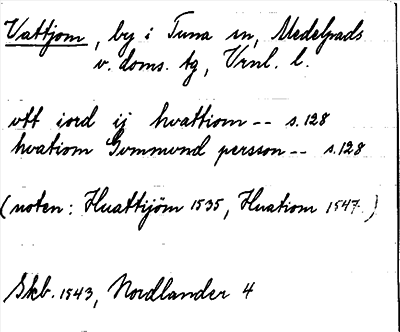 Vattjom, by i Tuna sn, Medelpads
v. doms. tg, Vrnl. l.
vtt iord ij hvattiom -- s. 128
hvatiom Gvmmvnd persson -- s. 128
(noten: Huattijöm 1535, Huatiom 1547.)
Skb. 1543, Nordlander 4